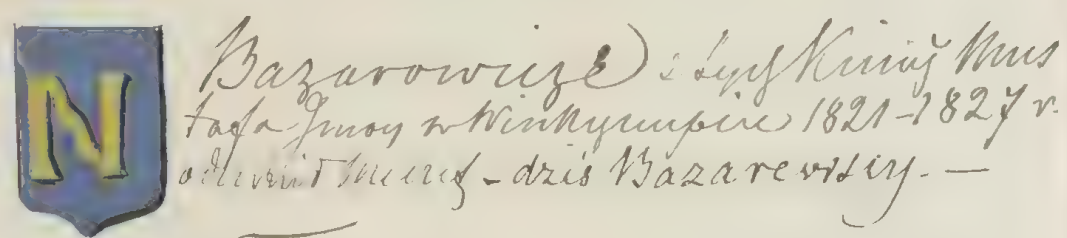 N
Bazarowicze) z tych Kniaź Mus
tafa Imam w 1821-1827 r.
- dziś Bazarewscy. -